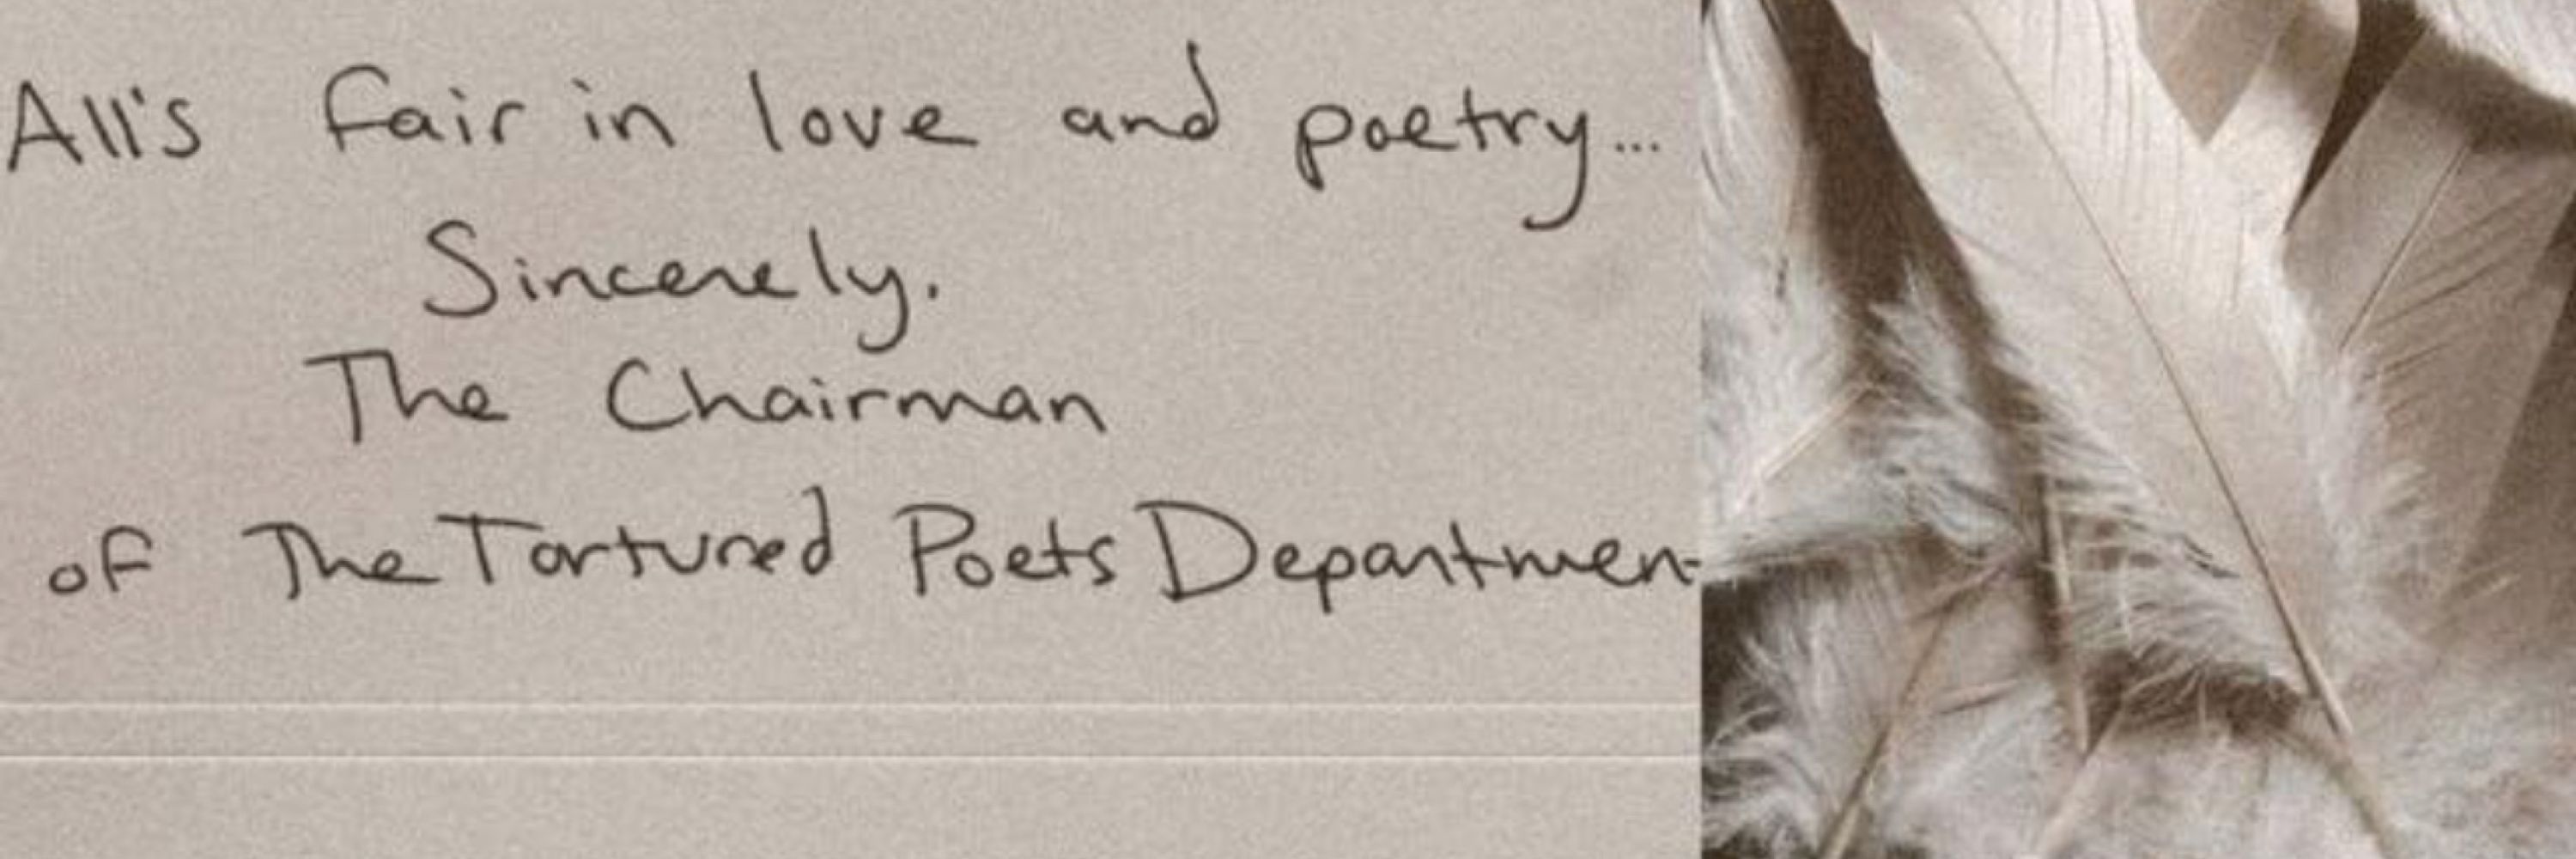 All's fair in love and poetry...
Sincerely.
The Chairman
of The Tortured Poets Departmen